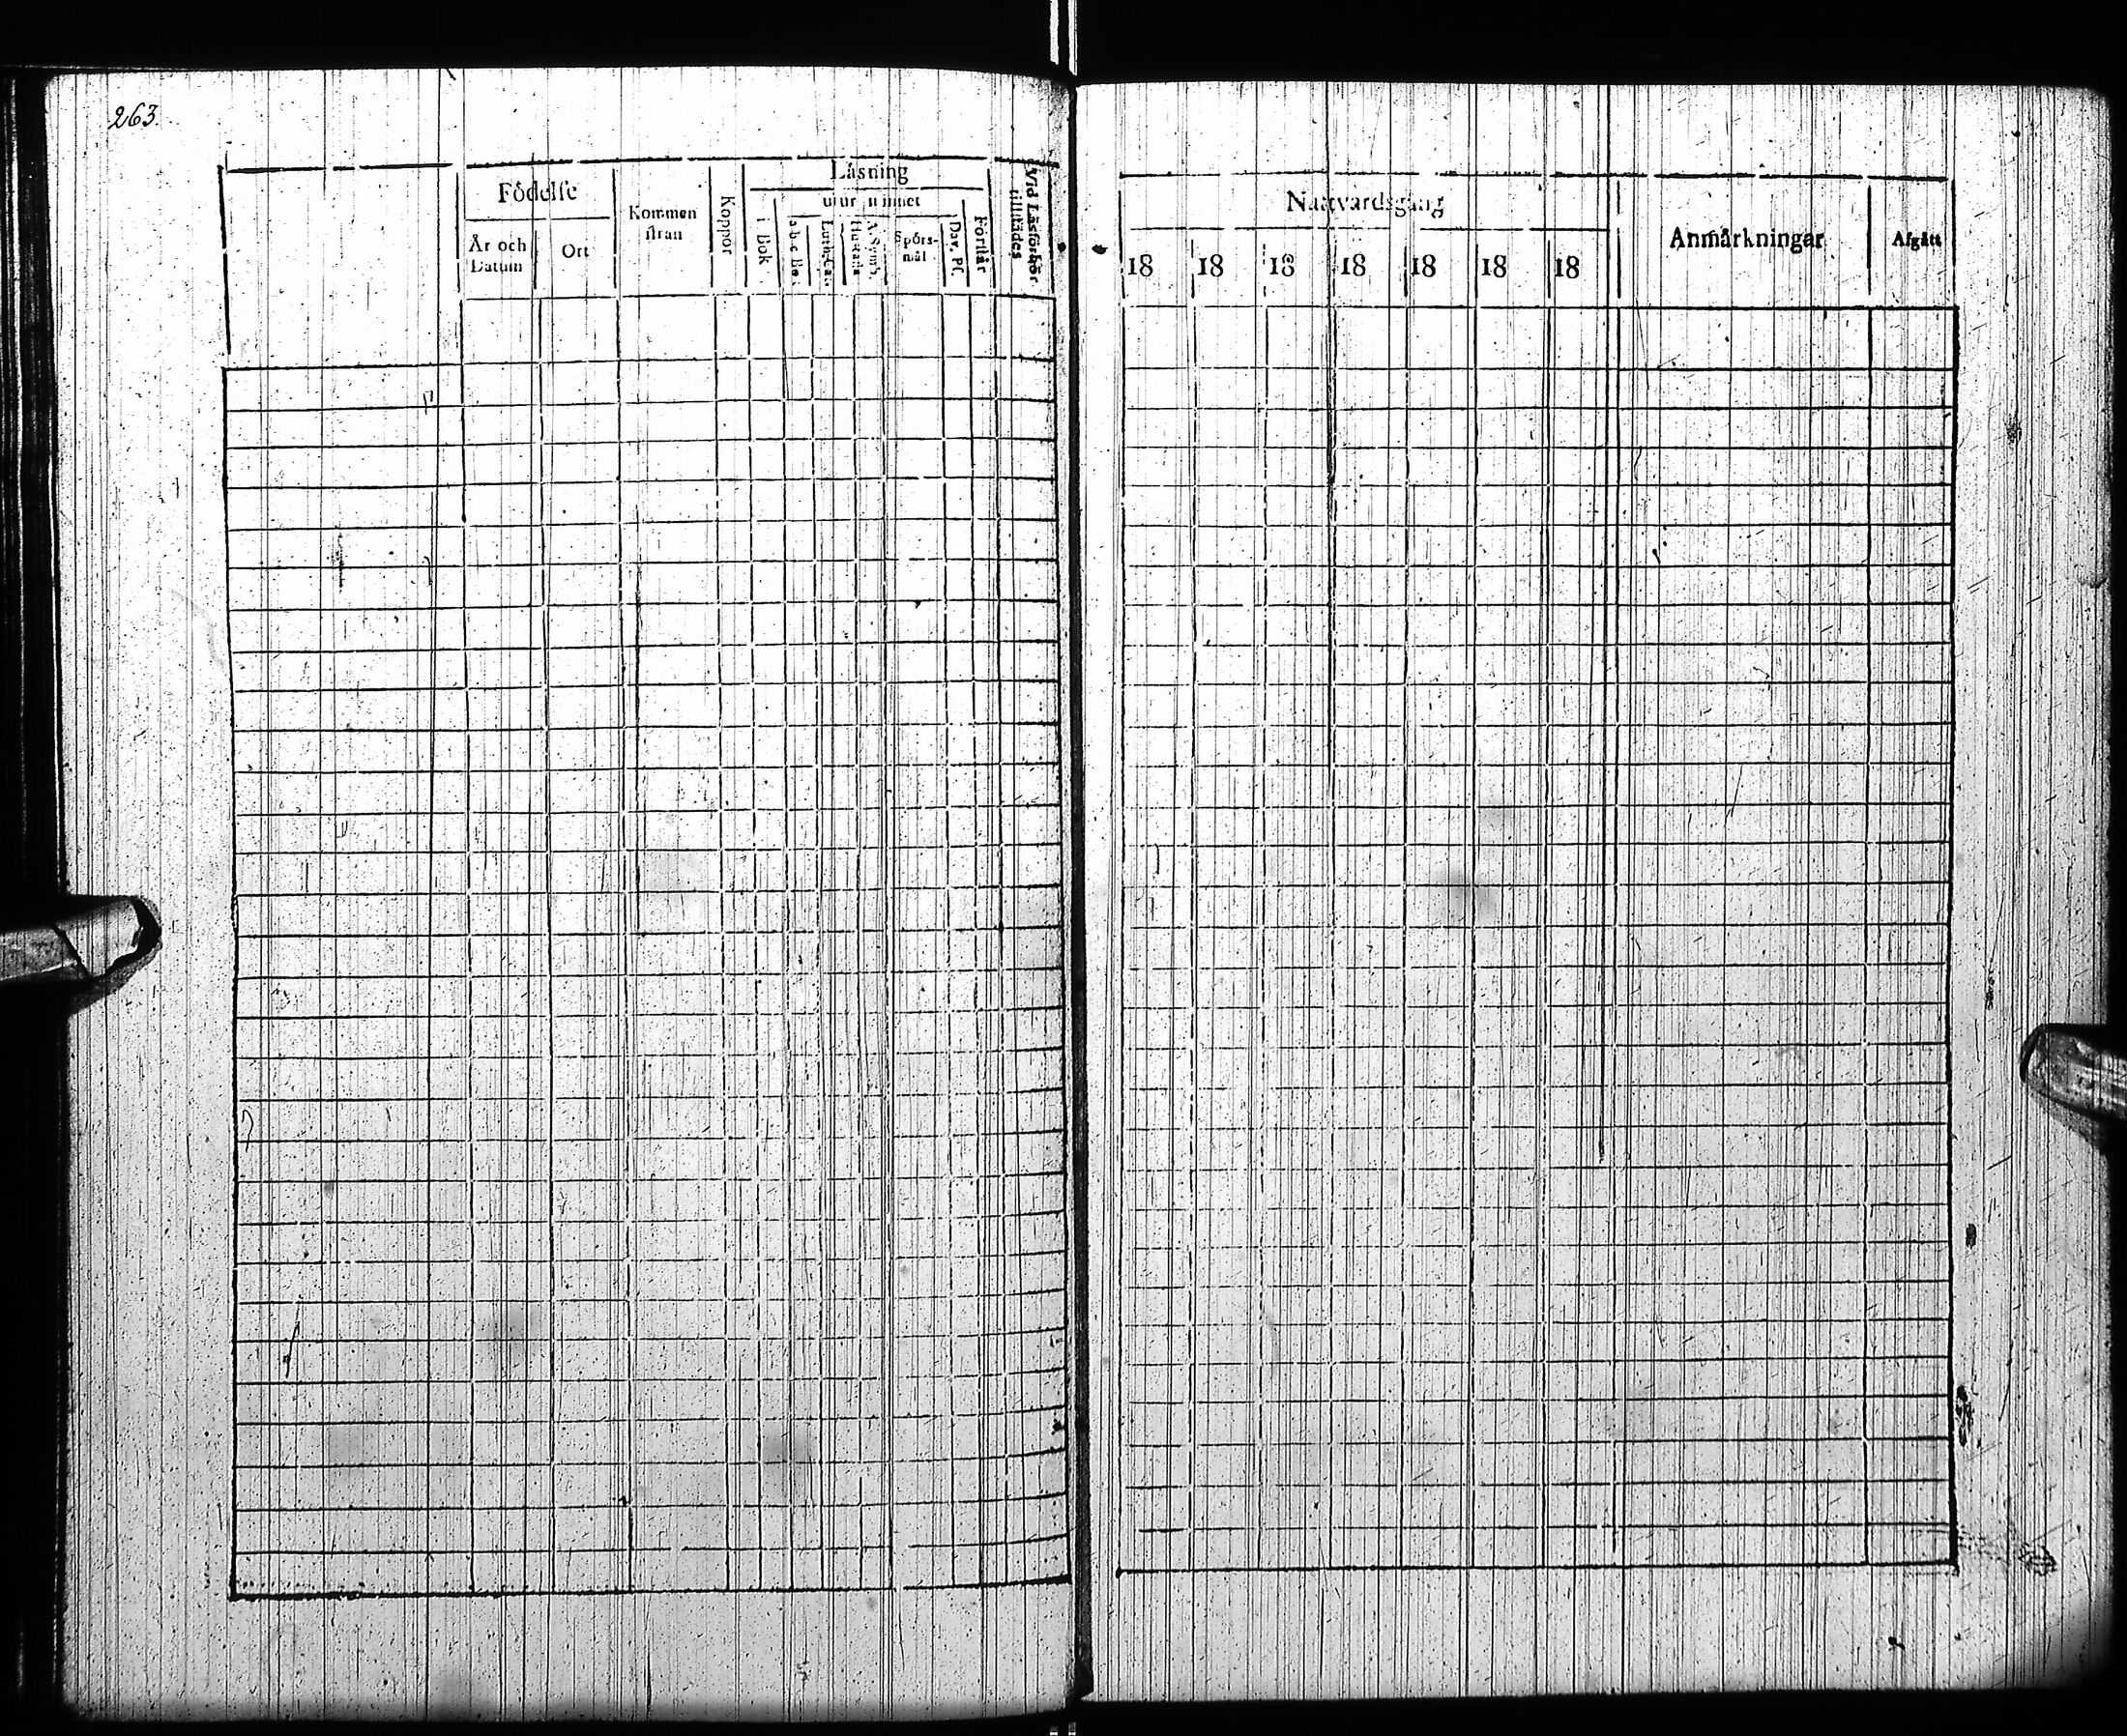 263
Födelse
År och Datum
Ort
Kommen ifrån
Koppor
Läsning
utur minnet
i Bok
a b c Bok
Luth. Cat.
Hustafla
A. Symb.
Spörsmål
Dav. Ps.
Förstår
Vid Läsförhör tillstädes
Nattvardsgång
18 18 18 18 18 18 18
Anmärkningar
Afgått